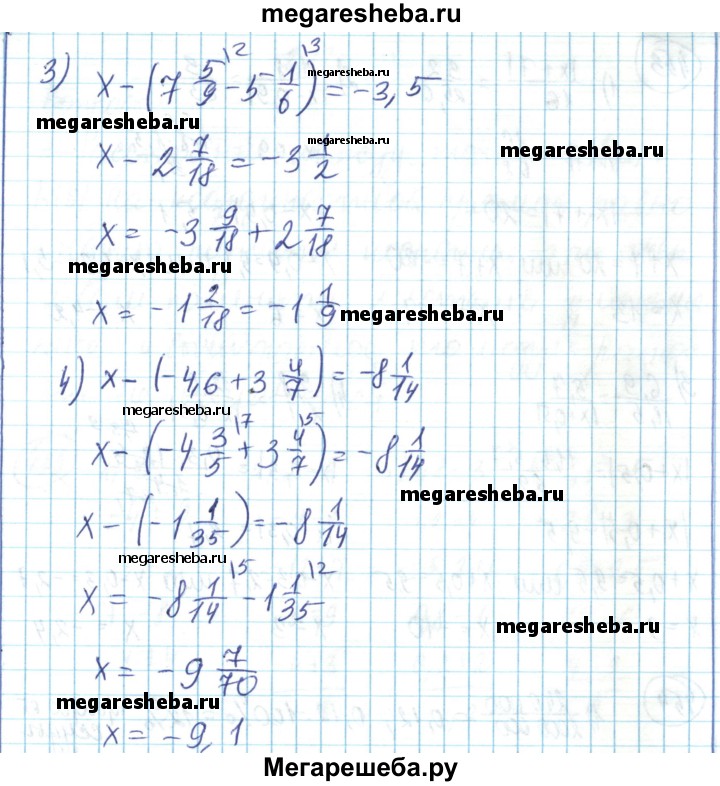 megaresheba.ru
3) x - (7 5/9 \2 - 5 1/6 \3) = -3,5
megaresheba.ru
megaresheba.ru
megaresheba.ru
x - 2 7/18 = -3 1/2
megaresheba.ru
x = -3 9/18 + 2 7/18
megaresheba.ru
x = -1 2/18 = -1 1/9
megaresheba.ru
4) x - (-4,6 + 3 4/7) = -8 1/14
megaresheba.ru
x - (-4 3/5 \7 + 3 4/7 \5) = -8 1/14
megaresheba.ru
x - (-1 1/35) = -8 1/14
megaresheba.ru
x = -8 1/14 \5 - 1 1/35 \2
megaresheba.ru
x = -9 7/70
megaresheba.ru
x = -9,1
Мегарешеба.ру